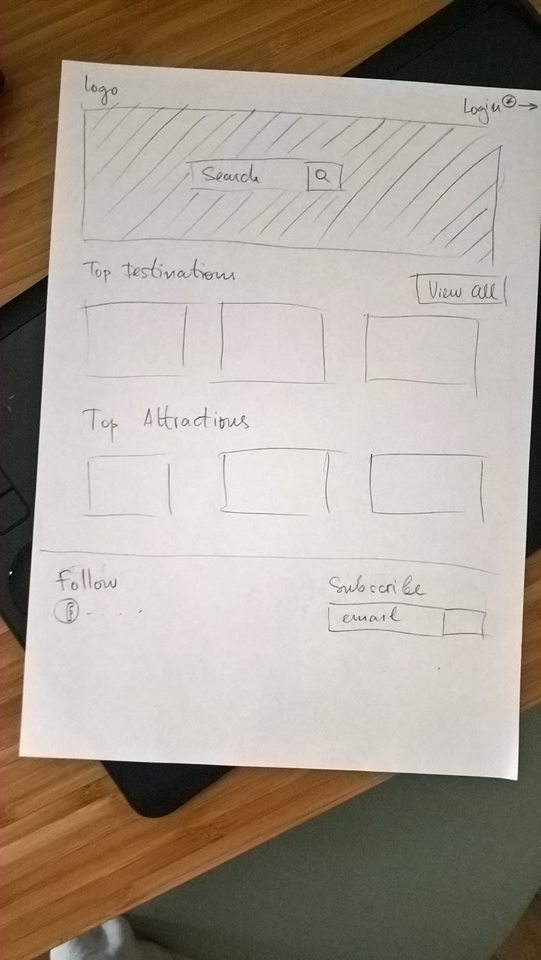 Logo
Login
Search
Top Destinations
View all
Top Attractions
Follow
f
Subscribe
email